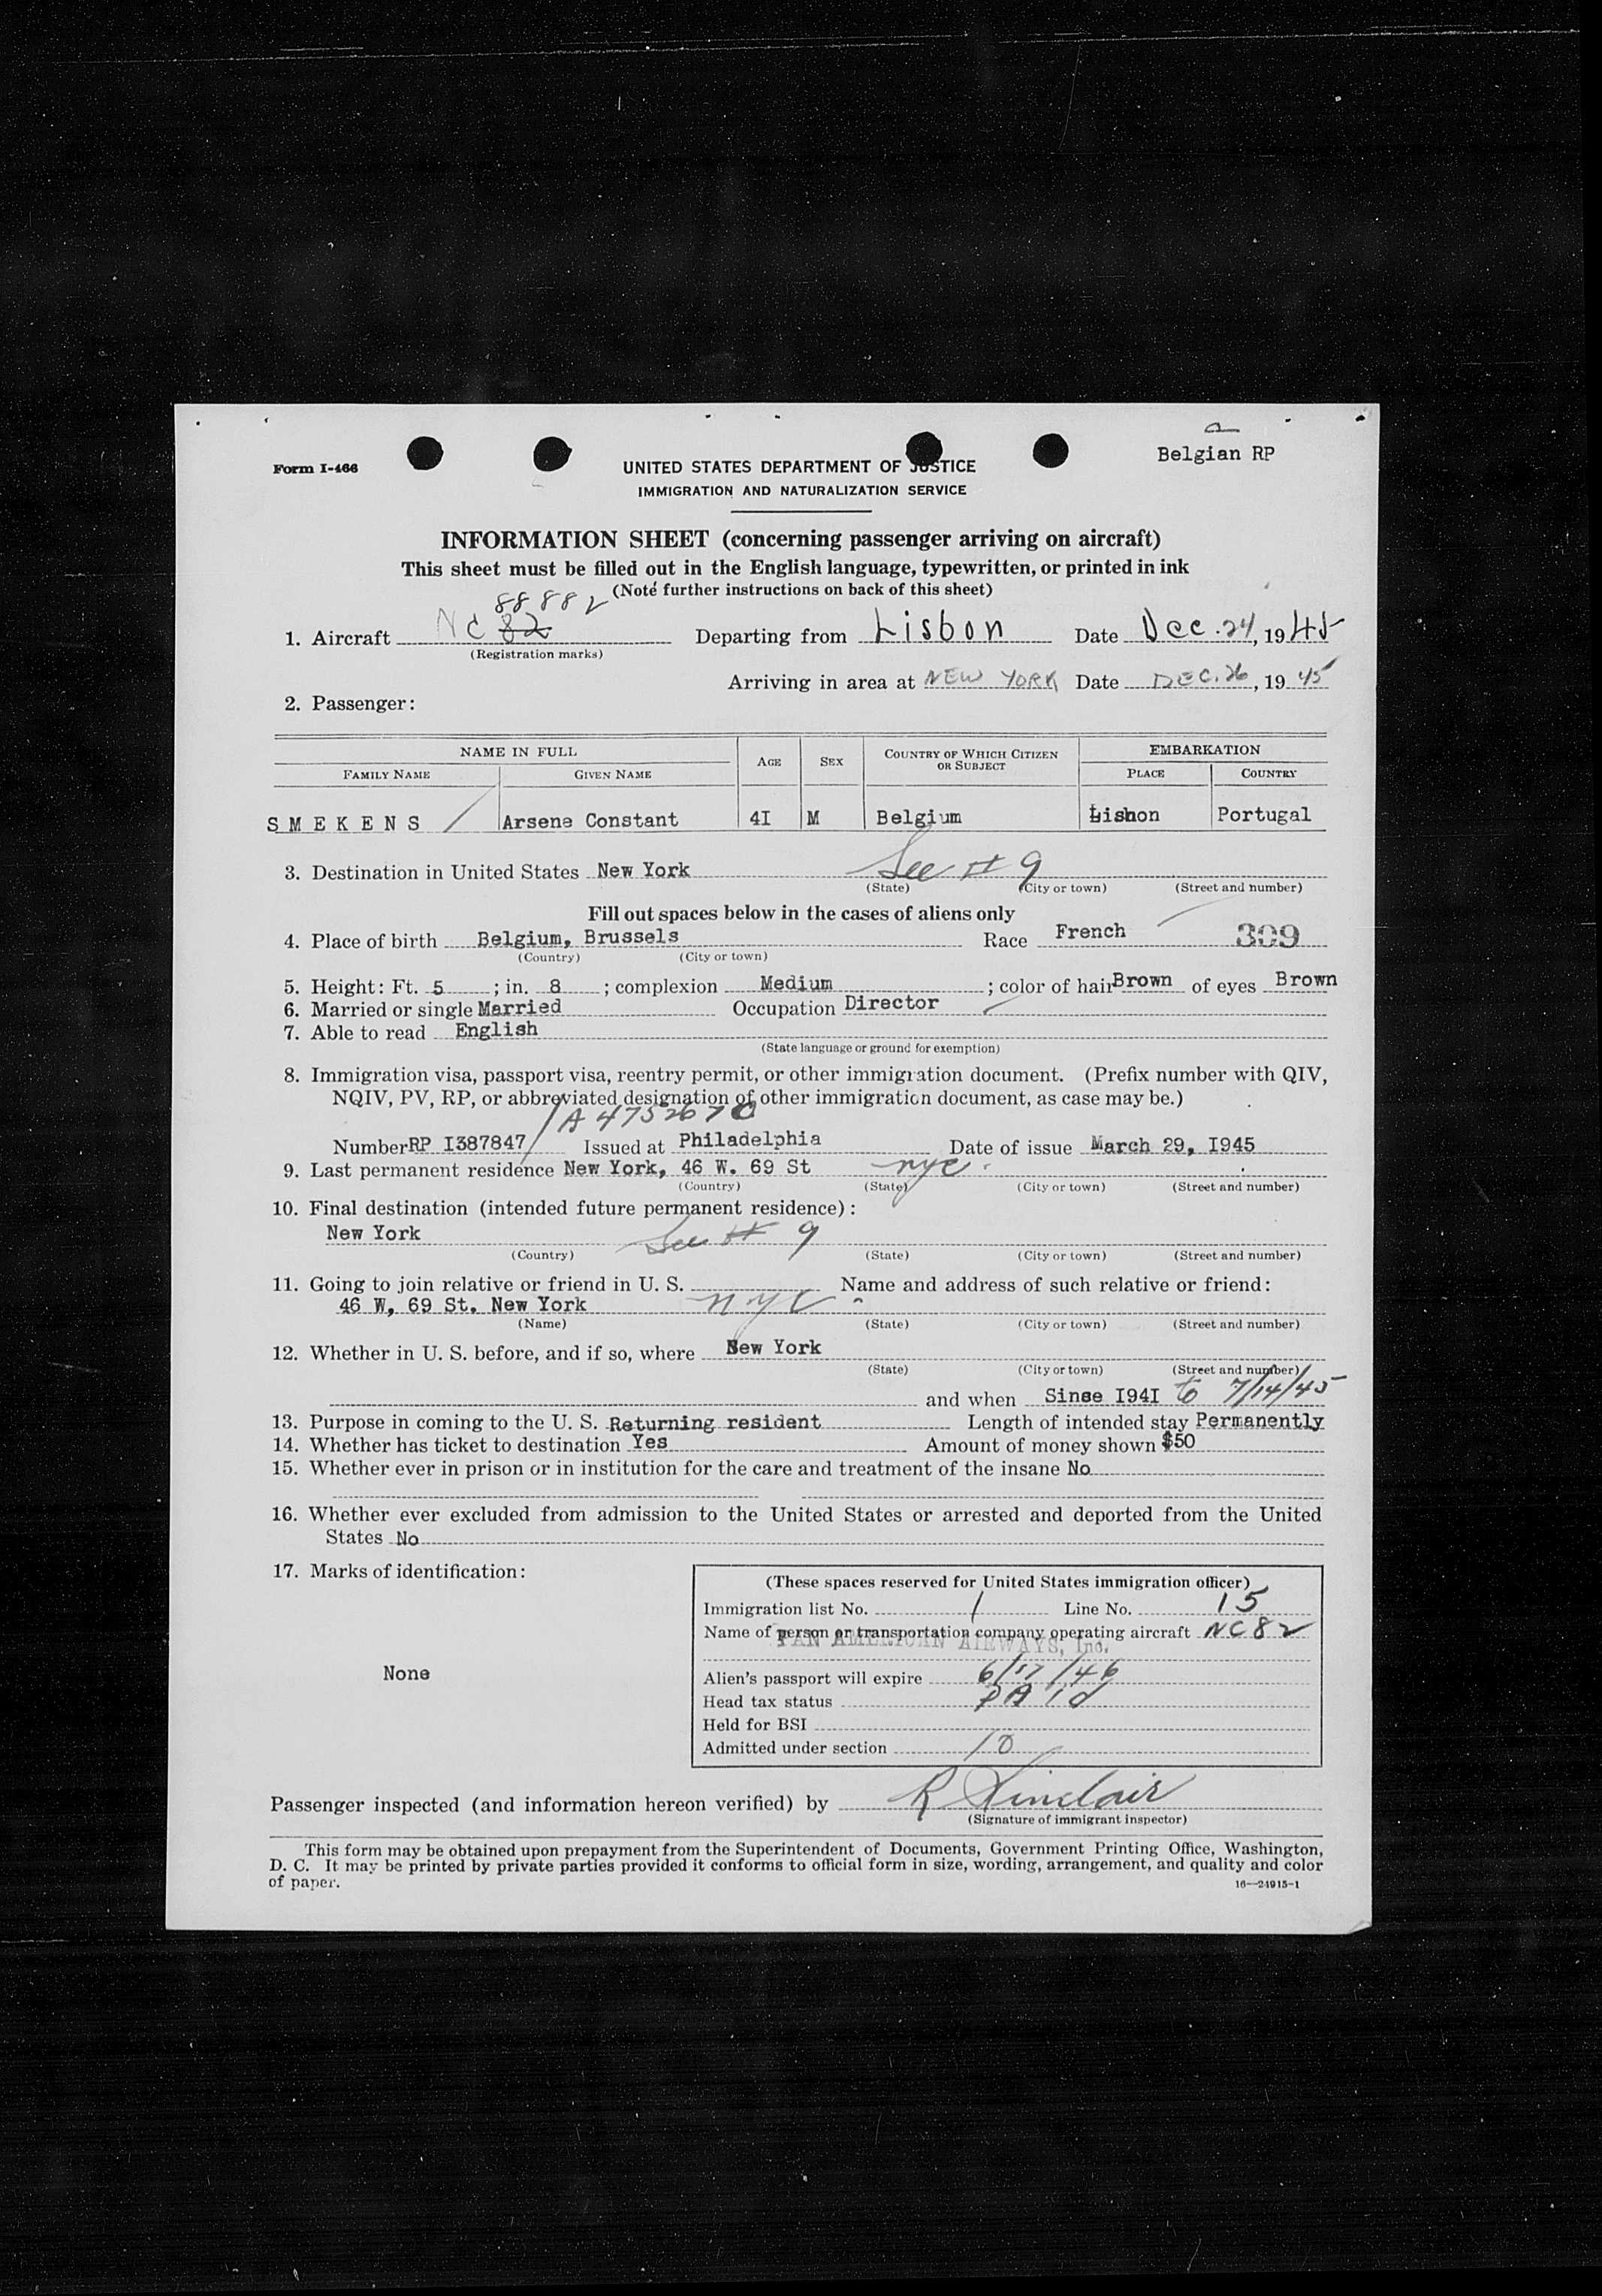 a
Belgian RP
Form I-466
UNITED STATES DEPARTMENT OF JUSTICE
IMMIGRATION AND NATURALIZATION SERVICE
INFORMATION SHEET (concerning passenger arriving on aircraft)
This sheet must be filled out in the English language, typewritten, or printed in ink
(Note further instructions on back of this sheet)
88882
1. Aircraft NC 82 Departing from Lisbon Date Dec. 24, 1945
(Registration marks)
Arriving in area at NEW YORK Date DEC. 26, 1945
2. Passenger:
NAME IN FULL AGE SEX COUNTRY OF WHICH CITIZEN OR SUBJECT EMBARKATION
FAMILY NAME GIVEN NAME PLACE COUNTRY
SMEKENS Arsene Constant 4I M Belgium Lisbon Portugal
3. Destination in United States New York See # 9
(State) (City or town) (Street and number)
Fill out spaces below in the cases of aliens only
4. Place of birth Belgium, Brussels Race French 309
(Country) (City or town)
5. Height: Ft. 5 ; in. 8 ; complexion Medium ; color of hair Brown of eyes Brown
6. Married or single Married Occupation Director
7. Able to read English
(State language or ground for exemption)
8. Immigration visa, passport visa, reentry permit, or other immigration document. (Prefix number with QIV,
NQIV, PV, RP, or abbreviated designation of other immigration document, as case may be.)
/A 4752670
Number RP I387847 Issued at Philadelphia Date of issue March 29, I945
9. Last permanent residence New York, 46 W. 69 St nyc.
(Country) (State) (City or town) (Street and number)
10. Final destination (intended future permanent residence):
New York See # 9
(Country) (State) (City or town) (Street and number)
11. Going to join relative or friend in U. S. Name and address of such relative or friend:
46 W, 69 St. New York nyc
(Name) (State) (City or town) (Street and number)
12. Whether in U. S. before, and if so, where New York
(State) (City or town) (Street and number)
and when Sinse I94I to 7/14/45
13. Purpose in coming to the U. S. Returning resident Length of intended stay Permanently
14. Whether has ticket to destination Yes Amount of money shown $50
15. Whether ever in prison or in institution for the care and treatment of the insane No
16. Whether ever excluded from admission to the United States or arrested and deported from the United
States No
17. Marks of identification:
None
(These spaces reserved for United States immigration officer)
Immigration list No. 1 Line No. 15
Name of person or transportation company operating aircraft NC82
PAN AMERICAN AIRWAYS, Inc.
Alien's passport will expire 6/17/46
Head tax status PAid
Held for BSI
Admitted under section 10
Passenger inspected (and information hereon verified) by R Sinclair
(Signature of immigrant inspector)
This form may be obtained upon prepayment from the Superintendent of Documents, Government Printing Office, Washington,
D. C. It may be printed by private parties provided it conforms to official form in size, wording, arrangement, and quality and color
of paper.
16—24915-1